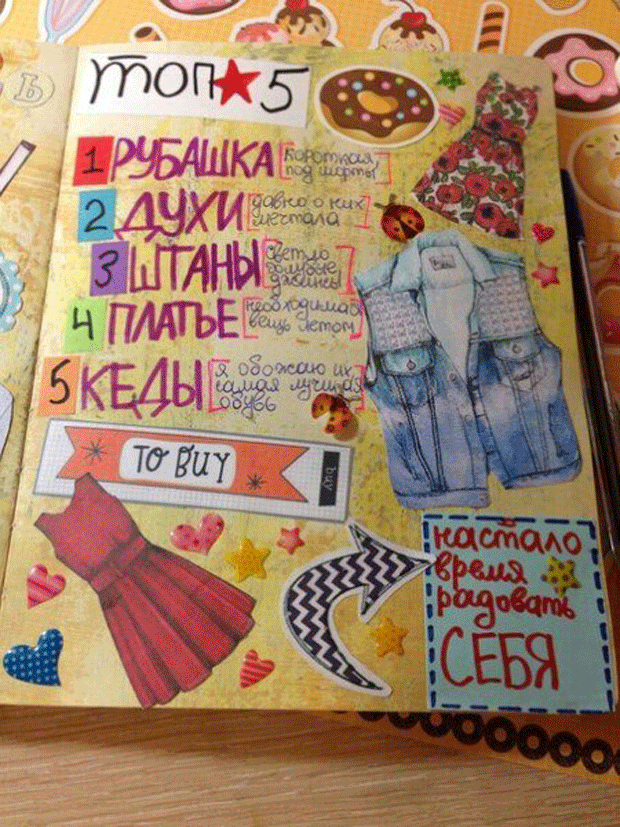 Ь
ТОП 5
1 РУБАШКА [короткая, под шорты]
2 ДУХИ [давно о них мечтала]
3 ШТАНЫ [светло голубые джинсы]
4 ПЛАТЬЕ [необходимая вещь летом]
5 КЕДЫ [я обожаю их, самая лучшая обувь]
TO BUY
buy
настало
время
радовать
СЕБЯ